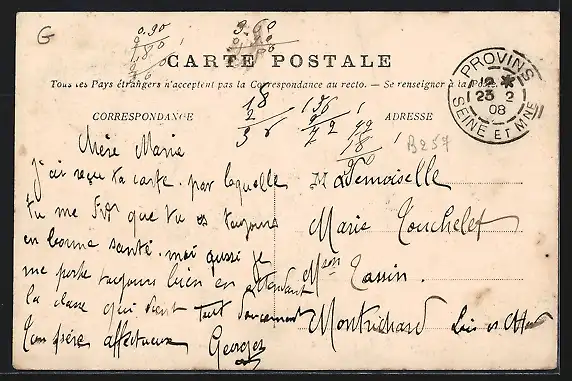 G
0.90
3.60
CARTE POSTALE
Tous les Pays étrangers n'acceptent pas la Correspondance au recto. — Se renseigner à la Poste
PROVINS
23 2
08
SEINE ET MNE
CORRESPONDANCE
ADRESSE
18
2
36
B257
Chère Marie
j'ai reçu ta carte. par laquelle
tu me que tu es toujours
en bonne santé. moi aussi je
me porte toujours bien en attendant
la classe qui vient tout doucement
Ton frère affectueux Georges
Mademoiselle
Marie Touchelet
Mson Tassin.
Montrichard Loir et Cher